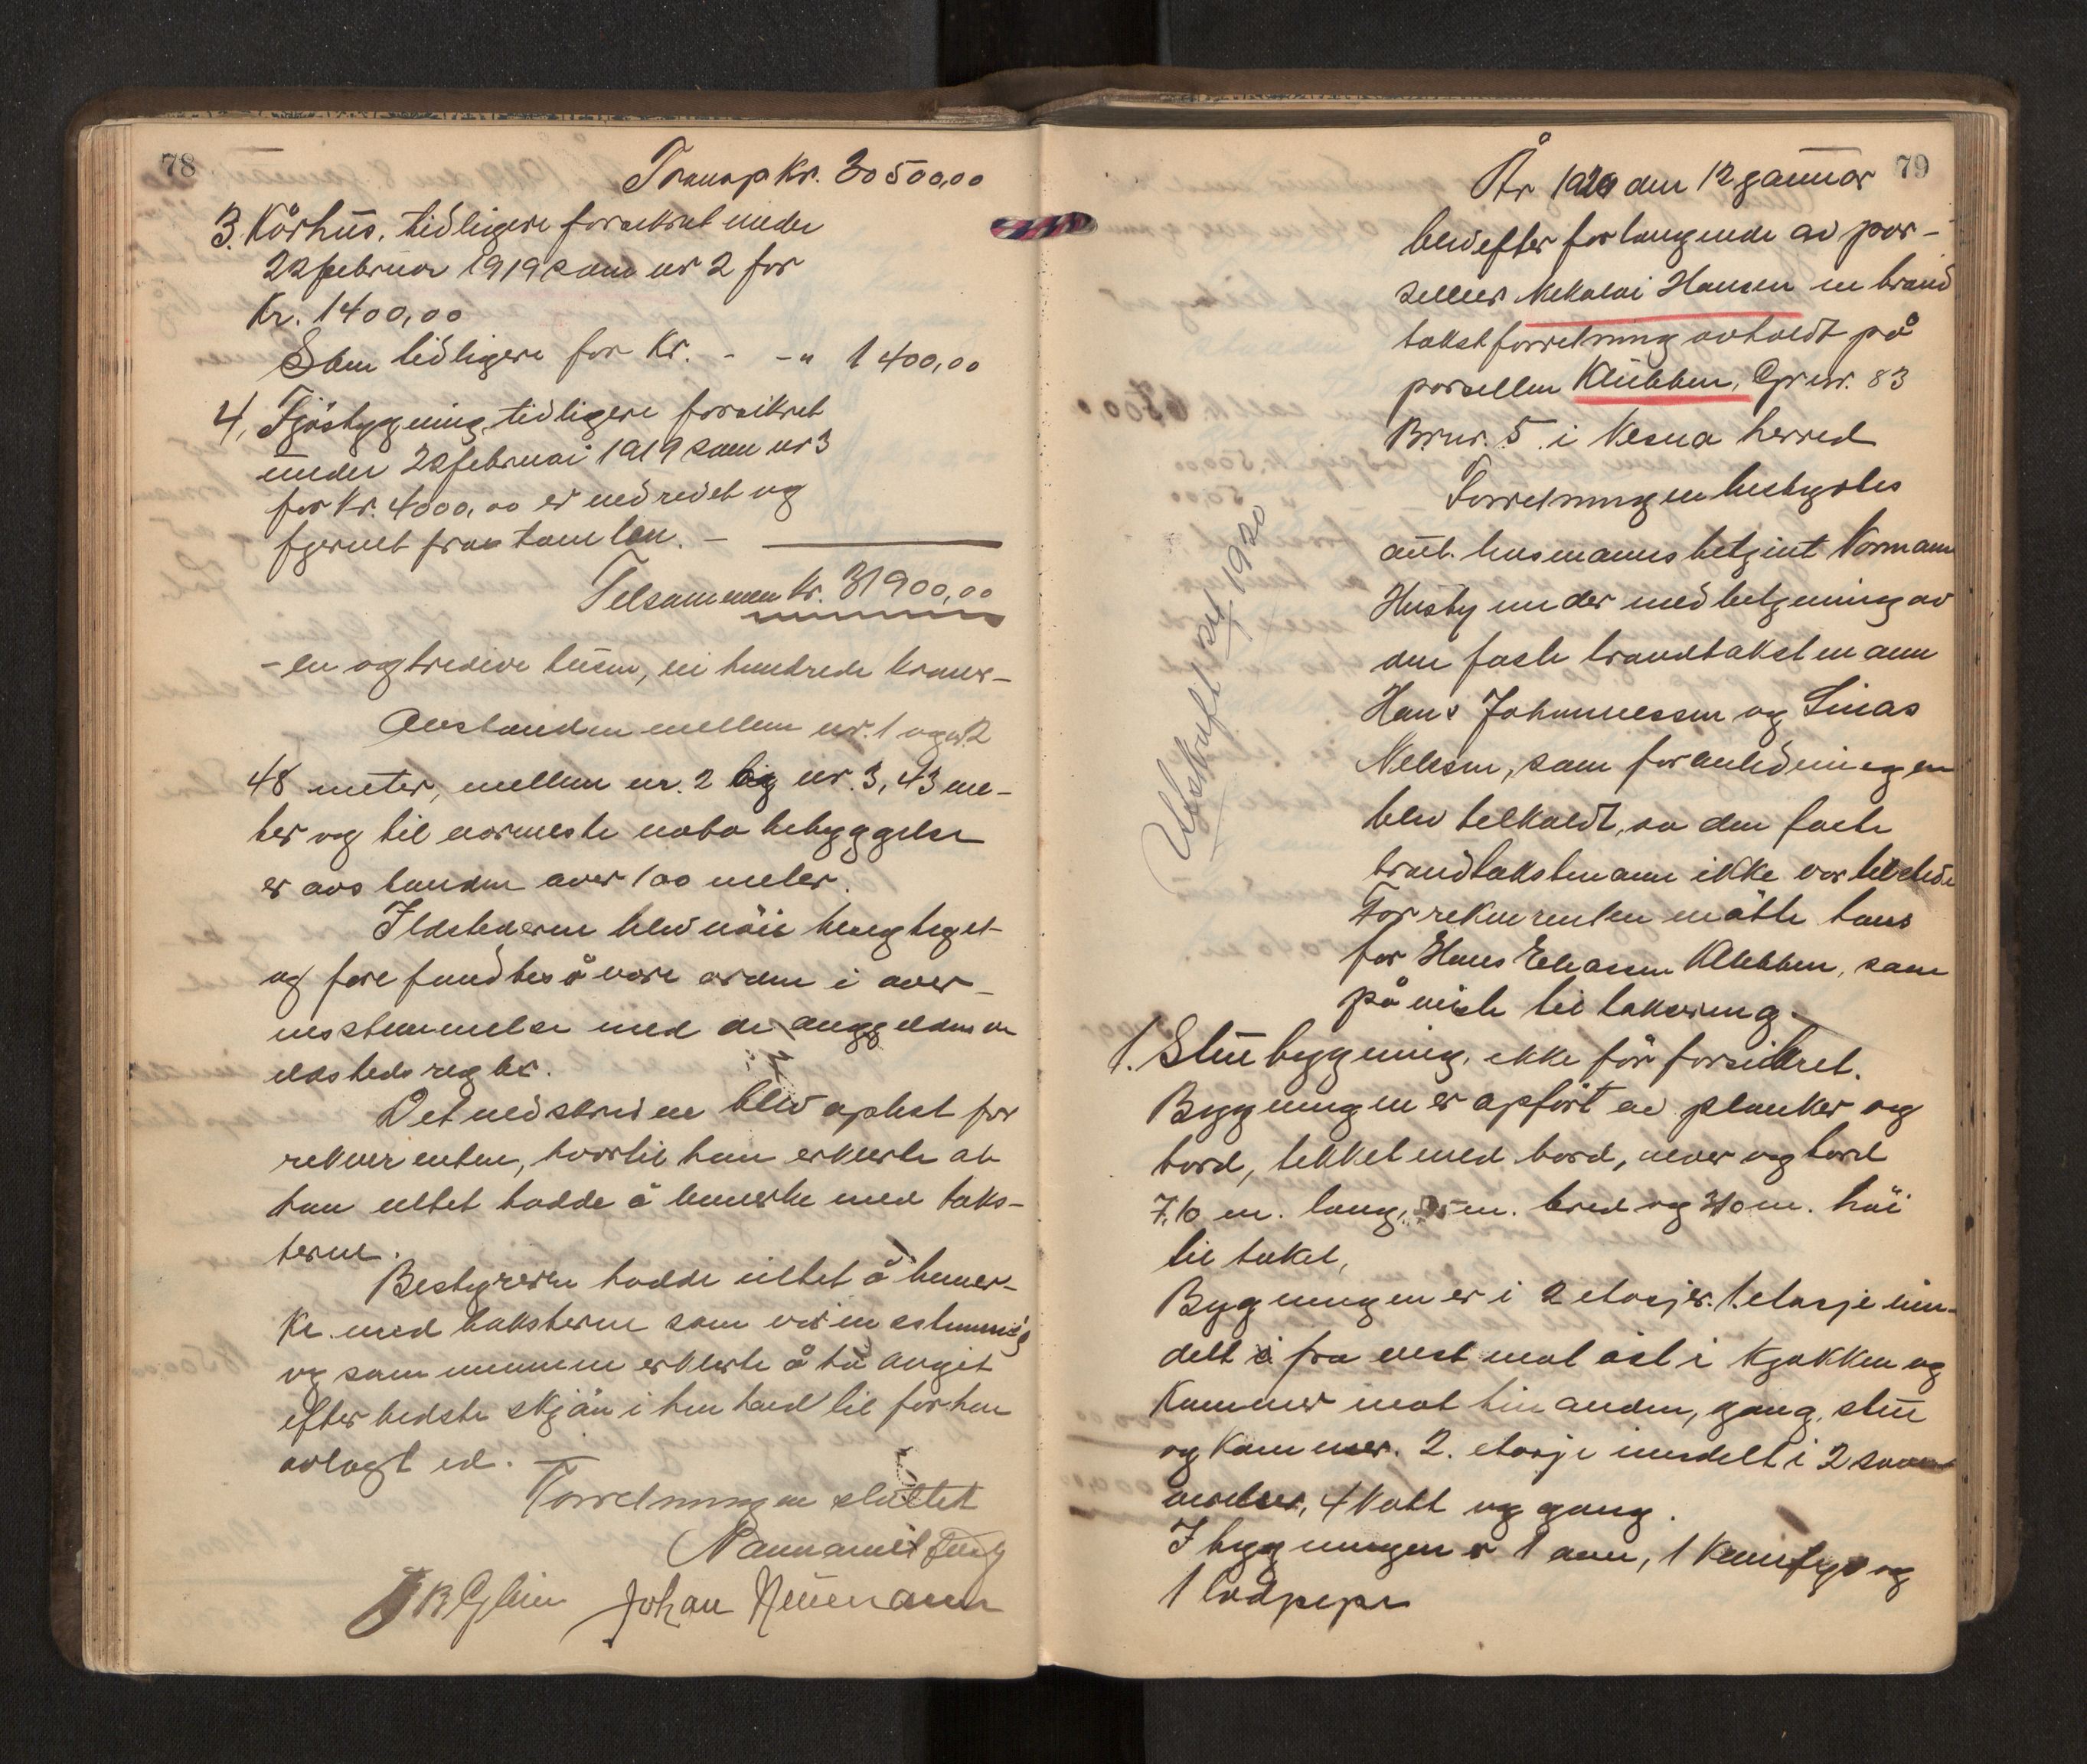 78
Transp Kr. 30500,00
3. Kårhus, tidligere forsikret under
22 februar 1919 som nr 2 for
Kr. 1400,00
Som tidligere for Kr. - - " 1400,00
4, Fjösbygning, tidligere forsikret
under 22 februar 1919 som nr 3
for Kr. 4000,00 er nedrevet og
fjernet fra tomten. -
Tilsammen Kr. 31900,00
- en og tredive tusen, ni hundrede kroner -
Avstanden mellem nr. 1 og nr. 2
48 meter, mellem nr. 2 og nr. 3, 43 me-
ter og til nærmeste nabo bebyggelse
er avstanden over 100 meter.
Ildstederne blev nöie besigtiget
og forefundtes å være orden i over-
ensstemmelse med de
ildstedsregler.
Det nedskrevne blev oplæst for
rekvirenten, hvortil han erklærte at
han intet hadde å bemerke med taks-
terne.
Bestyreren hadde intet å bemer-
ke med taksterne som var enstemmig
og som mennene erklærte å ha avgit
efter bedste skjön i henhold til forhen
avlagt ed. -
Forretningen sluttet
Normann Husby
Johan Neumann
79
År 1920 den 12 januar
blev efter forlangende av par-
sellier Nikolai Hansen en brand
takstforretning avholdt på
parsellen Klubben, Gr.nr. 83
Brnr. 5 i Nesna herred
Forretningen bestyrtes
aut. lensmannsbetjent Normann
Husby under medbetjening av
den faste brandtakstmann
Hans Johannessen og Linas
Nilsen, som for anledningen
blev tilkaldt, da den faste
brandtakstmann ikke var tilstede
For rekvirenten mötte hans
far Hans Eliassen Klubben, som
påviste til taksering. -
Utskrift 1920
1. Stuebygning, ikke för forsikret.
Bygningen er opfört av planker og
bord, tekket med bord, never og bord
7,10 m. lang, m. bred og 3,10 m. höi
til taket,
Bygningen er i 2 etasjer. 1. etasje inn-
delt i fra vest mot öst i kjökken og
kammer mot hinanden, gang, stue
og kammer. 2. etasje inndelt i 2 sove
værelser, 4 kott og gang.
I bygningen er 1 ovn, 1 komfyr og
1 lodpipe